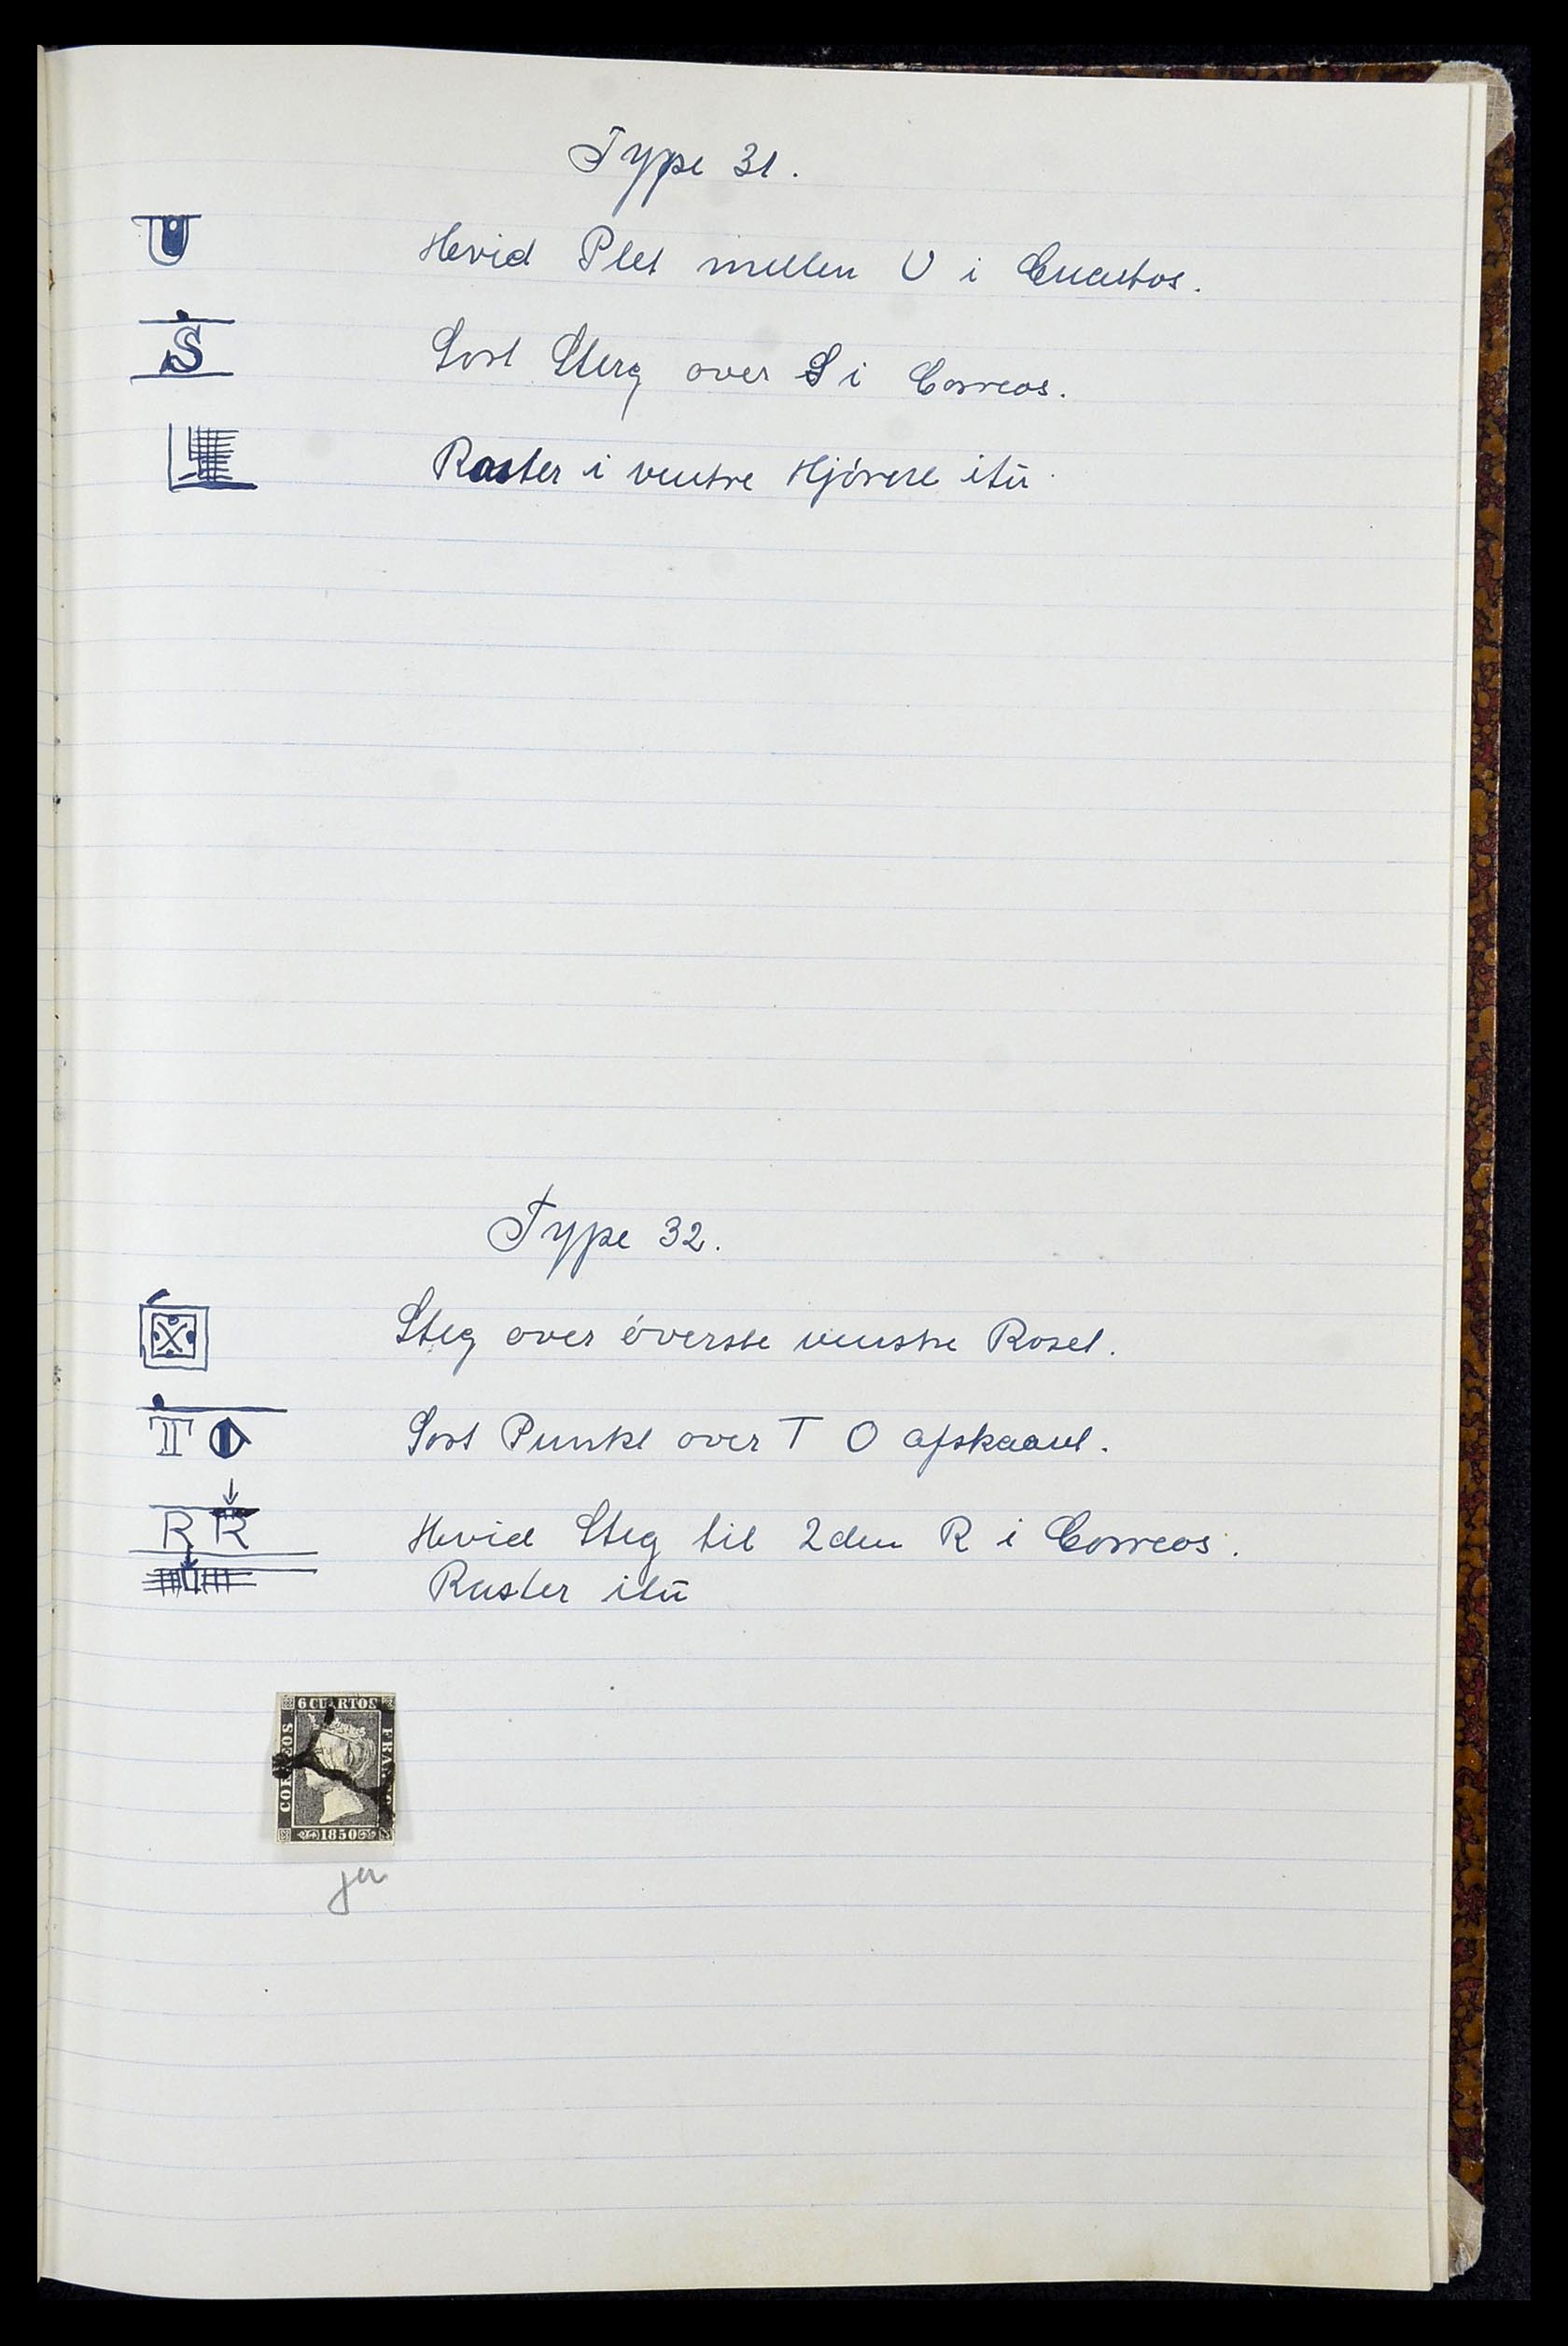 Type 31.
U Hevid Plet mellen U i Cuartos.
S Sort Sterg over S i Correos.
Raster i ventre Hjörne itü
Type 32.
Steg over överste venstre Roset.
T O Sort Punkt over T O afskaaret.
R R Hevid Steg til 2den R i Correos.
Raster itü
6 CUARTOS
CORREOS
FRANCO
1850
ja